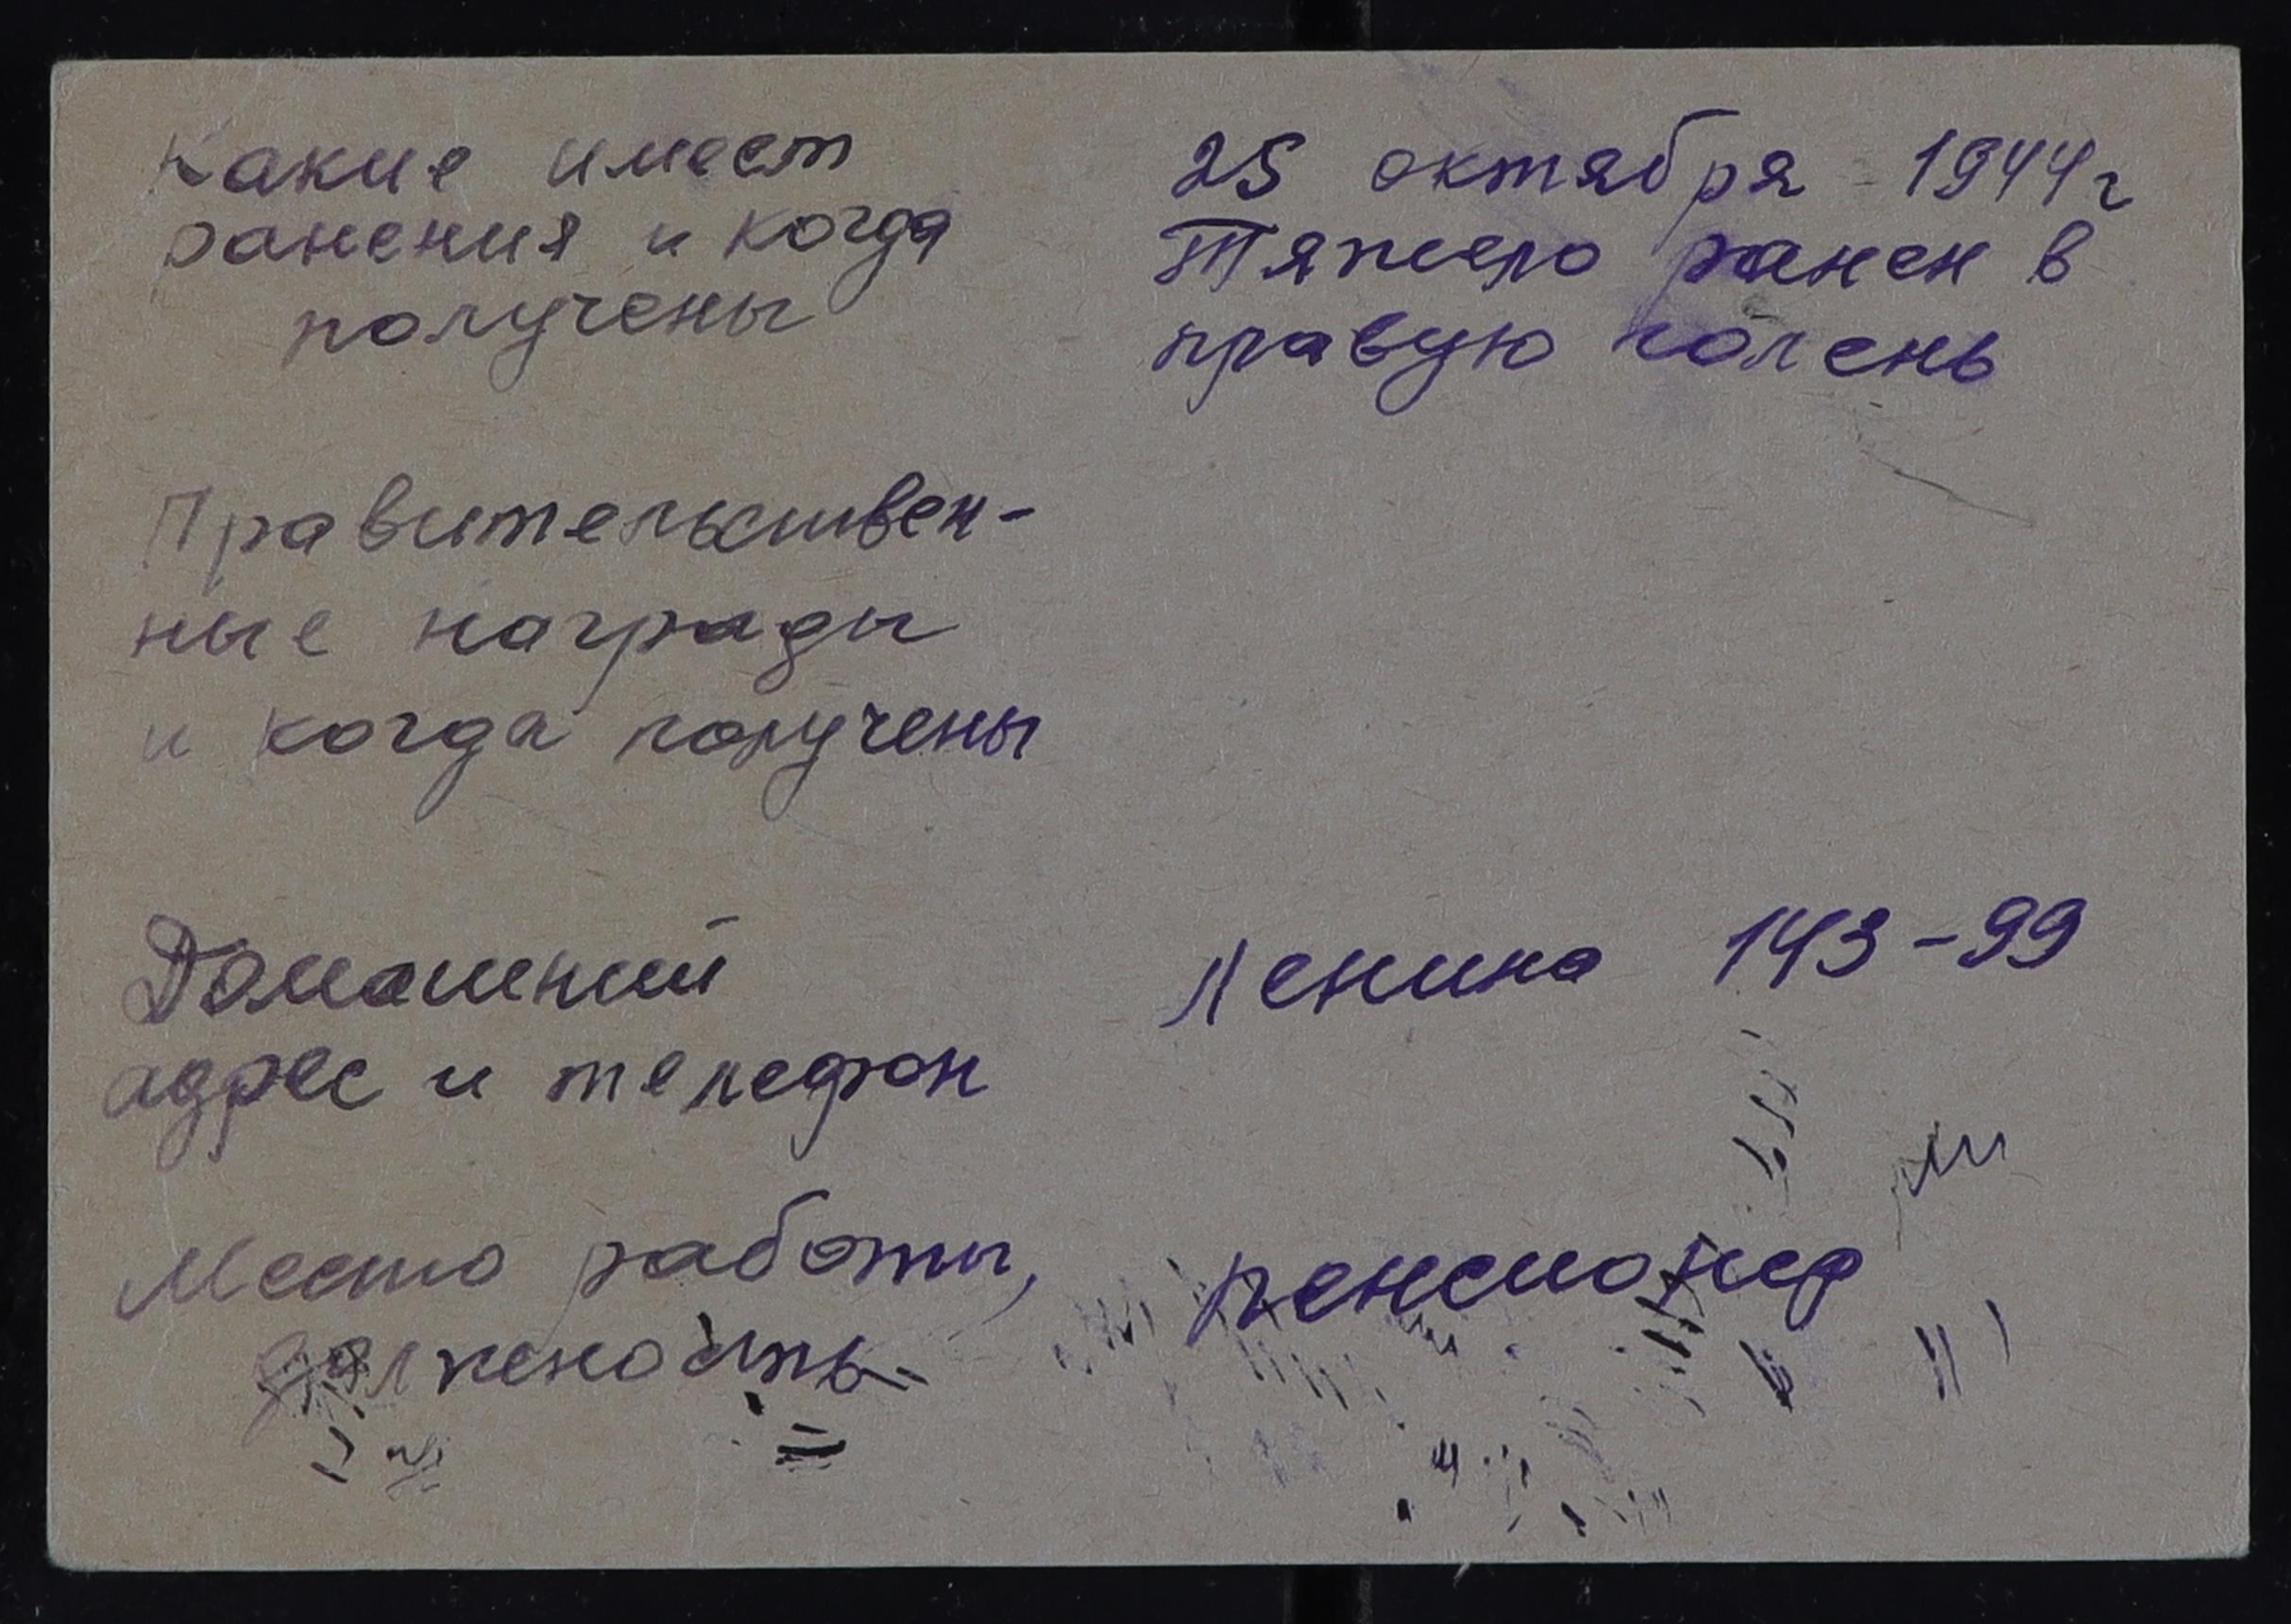 Какие имеет
ранения и когда
получены
25 октября 1944 г
Тяжело ранен в
правую голень
Правительствен-
ные награды
и когда получены
Домашний
адрес и телефон
Ленина 143-99
Место работы,
должность
пенсионер